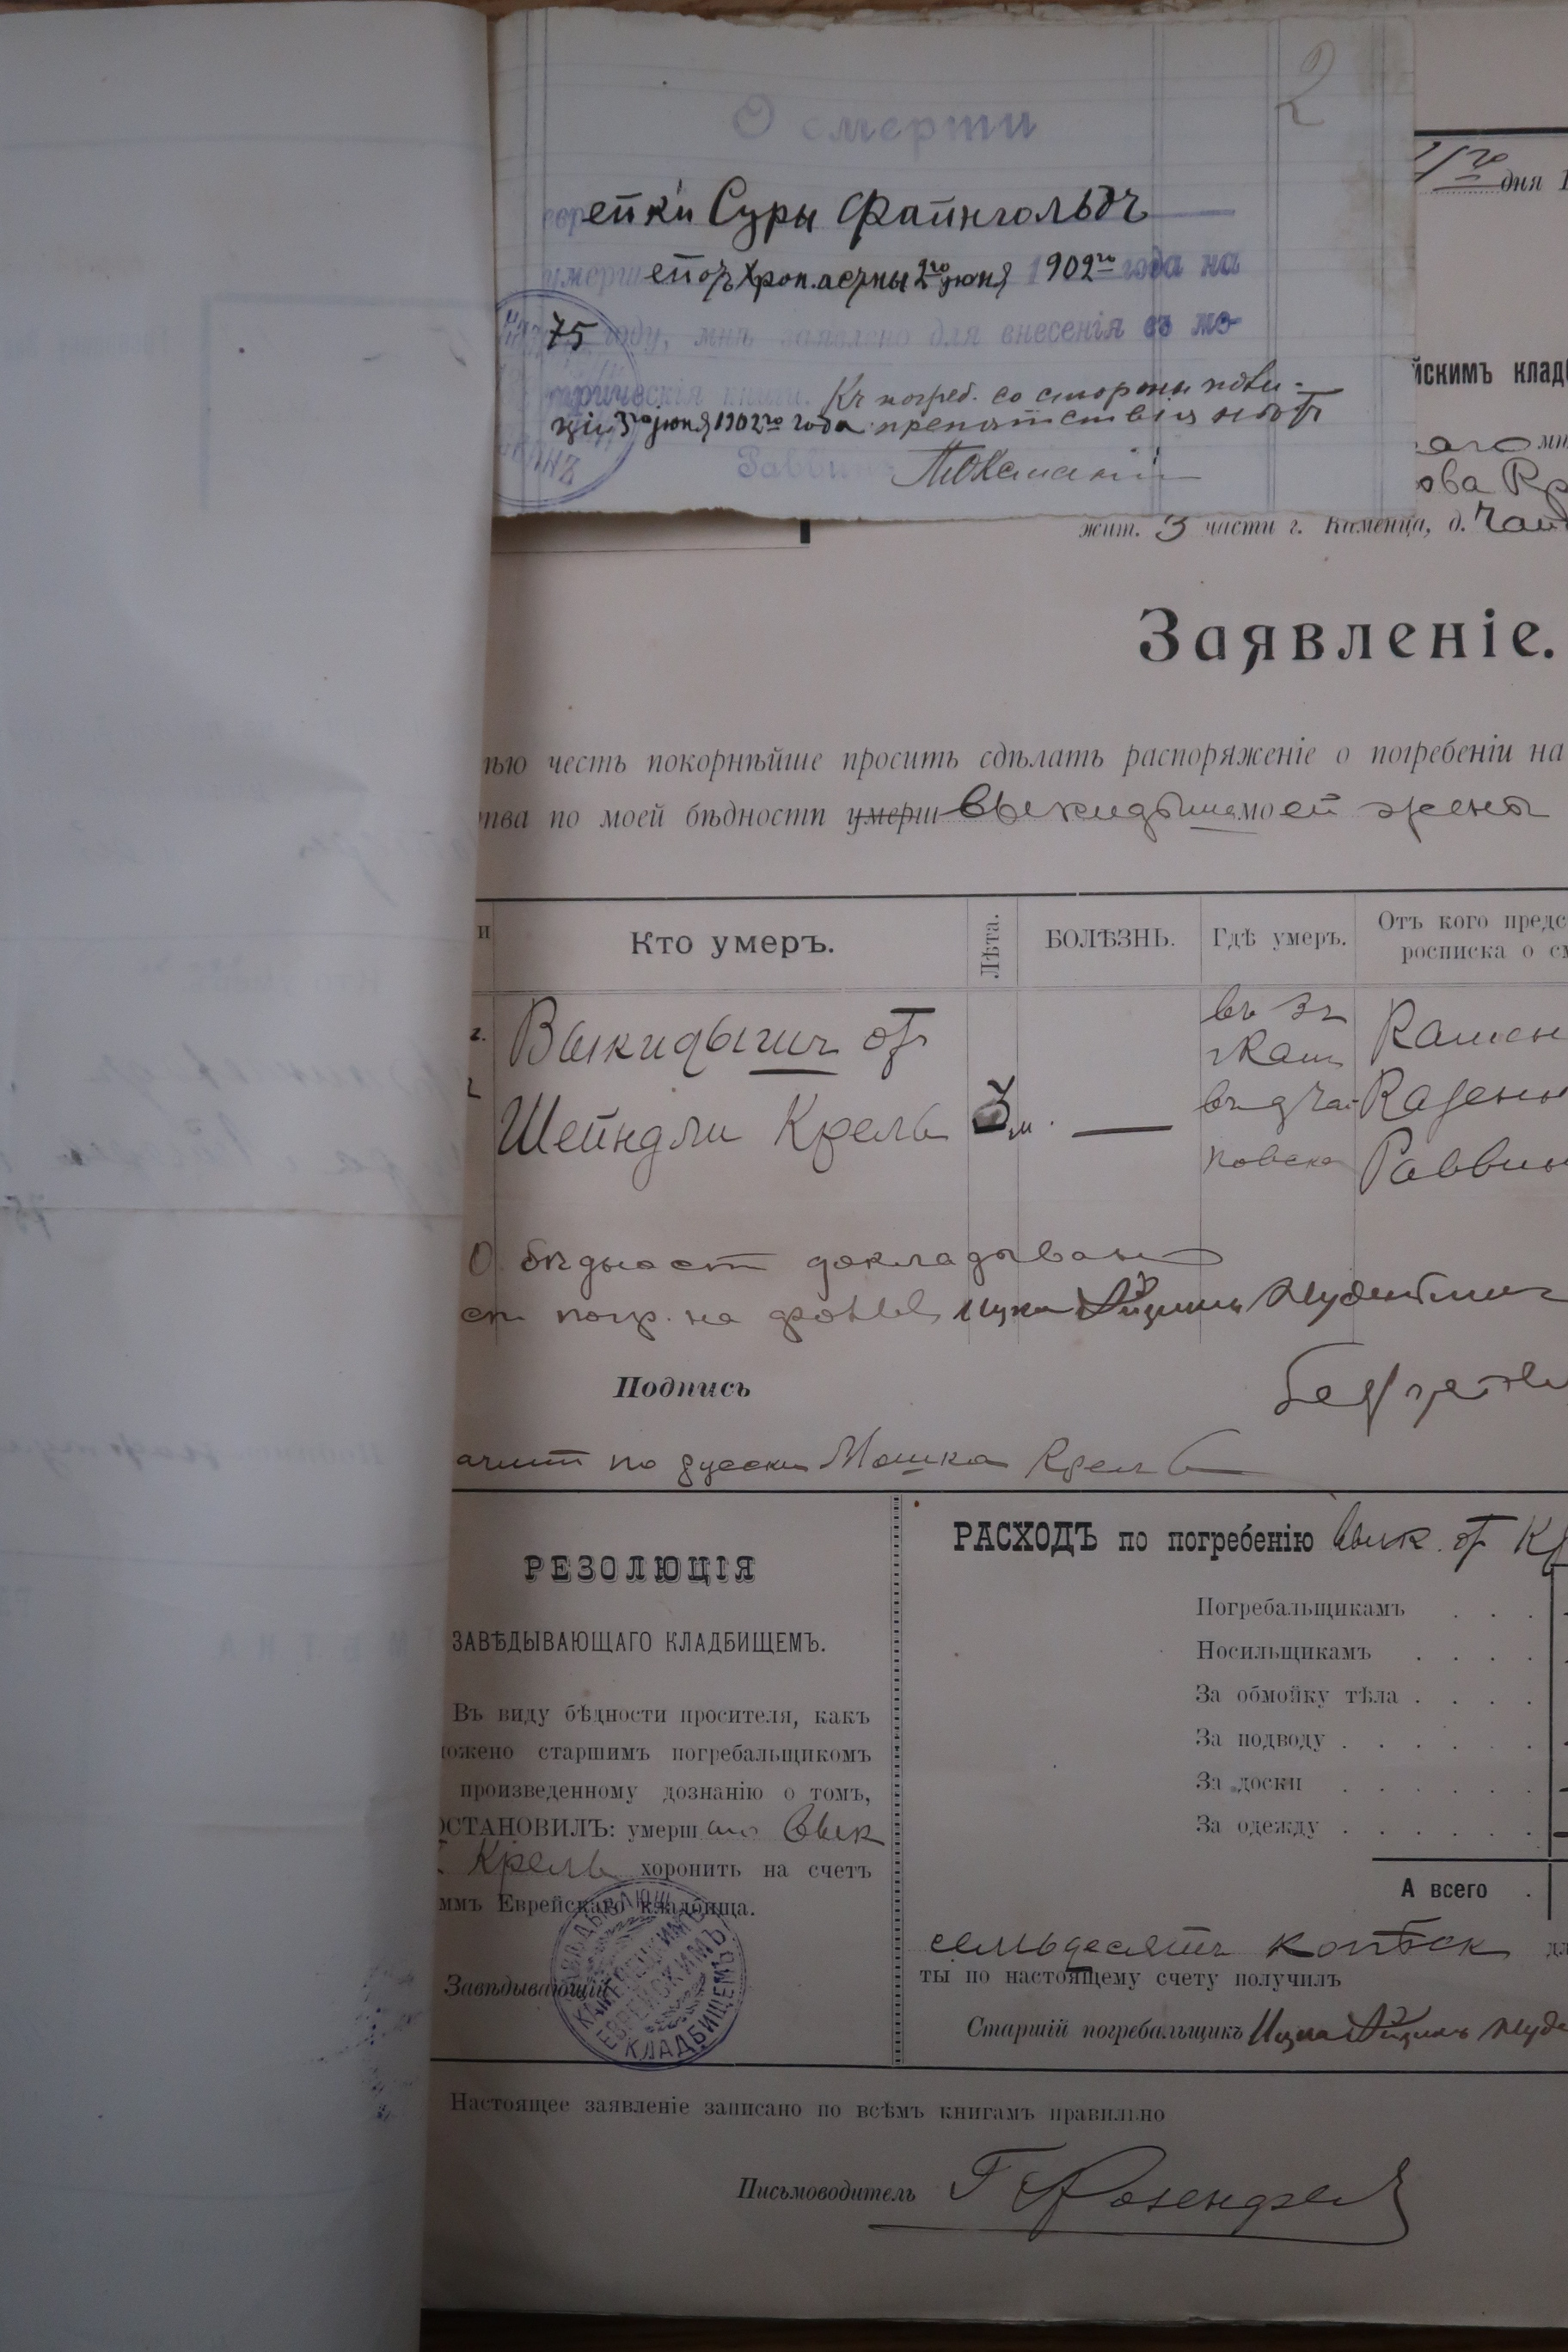 2
О смерти
еврейки Суры Файнгольдъ
умершей отъ 2го июня 1902го года на
75 году, мнѣ заявлено для внесенія въ ме-
трическія книги. Къ погреб. со стороны поли-
ціи 3го июня 1902го года препятствія нѣтъ
Раввинъ
дня 1
йскимъ кладб
аго
ова Кр
жит. 3 части г. Каменца, д. Чай
Заявленіе.
тью честь покорнѣйше просить сдѣлать распоряженіе о погребеніи на
тва по моей бѣдности умерш выкидыша моей жены
и
Кто умеръ.
Лѣта.
БОЛѢЗНЬ.
Гдѣ умеръ.
Отъ кого предс
росписка о см
г.
Выкидышъ отъ
Шейндли Крель
3 м.
въ 3 ч
г Кам
въ д Чай
ковска
Камен
Казенн
Раввин
О бѣдност докладываю
погр. на
Подпись
по русски Мошка Крель
РЕЗОЛЮЦІЯ
ЗАВѢДЫВАЮЩАГО КЛАДБИЩЕМЪ.
Въ виду бѣдности просителя, какъ
ложено старшимъ погребальщикомъ
произведенному дознанію о томъ,
ОСТАНОВИЛЪ: умерш аго Вык
Крель хоронить на счетъ
ммъ Еврейскаго кладбища.
Завѣдывающій
ЗАВѢДЫВАЮЩ КАМЕНЕЦКИМЪ ЕВРЕЙСКИМЪ КЛАДБИЩЕМЪ
РАСХОДЪ по погребенію Вык. от Кр
Погребальщикамъ . . .
Носильщикамъ . . . .
За обмойку тѣла . . . .
За подводу . . . . . .
За доски . . . . . .
За одежду . . . . . .
А всего .
семьдесятъ копѣек
ты по настоящему счету получилъ
Старшій погребальщикъ
Настоящее заявленіе записано по всѣмъ книгамъ правильно
Письмоводитель Г Розенфел